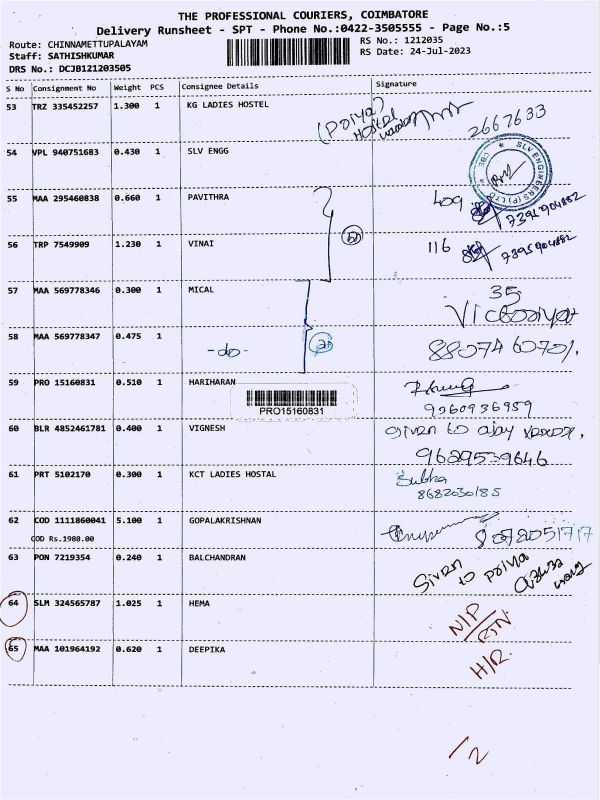 THE PROFESSIONAL COURIERS, COIMBATORE
Delivery Runsheet - SPT - Phone No.:0422-3505555 - Page No.:5
Route: CHINNAMETTUPALAYAM
Staff: SATHISHKUMAR
DRS No.: DCJB121203505
RS No.: 1212035
RS Date: 24-Jul-2023
S No Consignment No Weight PCS Consignee Details Signature
53 TRZ 335452257 1.300 1 KG LADIES HOSTEL
(Poiya)
Hostel
2667633
54 VPL 940751683 0.430 1 SLV ENGG
SLV ENGINEERS (P) LTD * CBE *
55 MAA 295460838 0.660 1 PAVITHRA 409
7391904882
56 TRP 7549909 1.230 1 VINAI 116
7395904882
57 MAA 569778346 0.300 1 MICAL 35
Victoriya
58 MAA 569778347 0.475 1
-do- 8807460701.
59 PRO 15160831 0.510 1 HARIHARAN
PRO15160831
9260936959
60 BLR 4852461781 0.400 1 VIGNESH Given to ajay
9629539646
61 PRT 5102170 0.300 1 KCT LADIES HOSTAL Subha
8682030185
62 COD 1111860041 5.100 1 GOPALAKRISHNAN
COD Rs.1980.00
8072051717
63 PON 7219354 0.240 1 BALCHANDRAN Given
to poiya
64 SLM 324565787 1.025 1 HEMA N/P
RTN
65 MAA 101964192 0.620 1 DEEPIKA H/R
/2